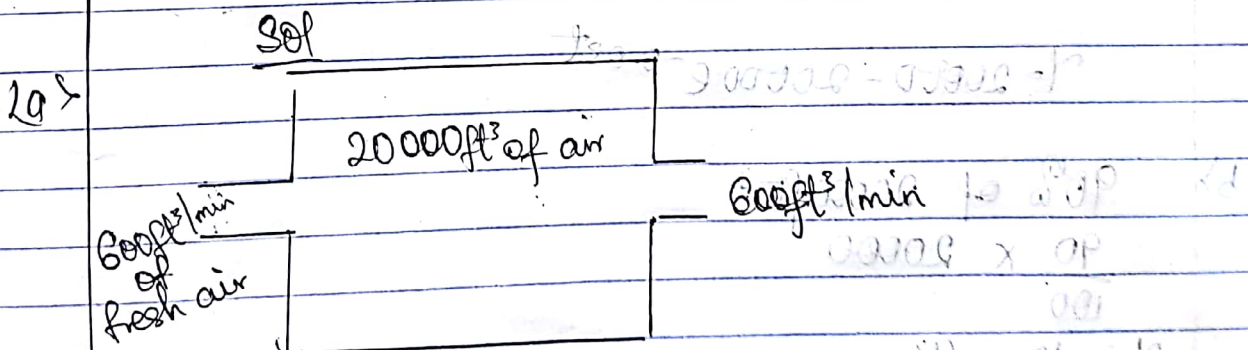 Sol
2a>
20000ft³ of air
600ft³/min
of
fresh air
600ft³/min